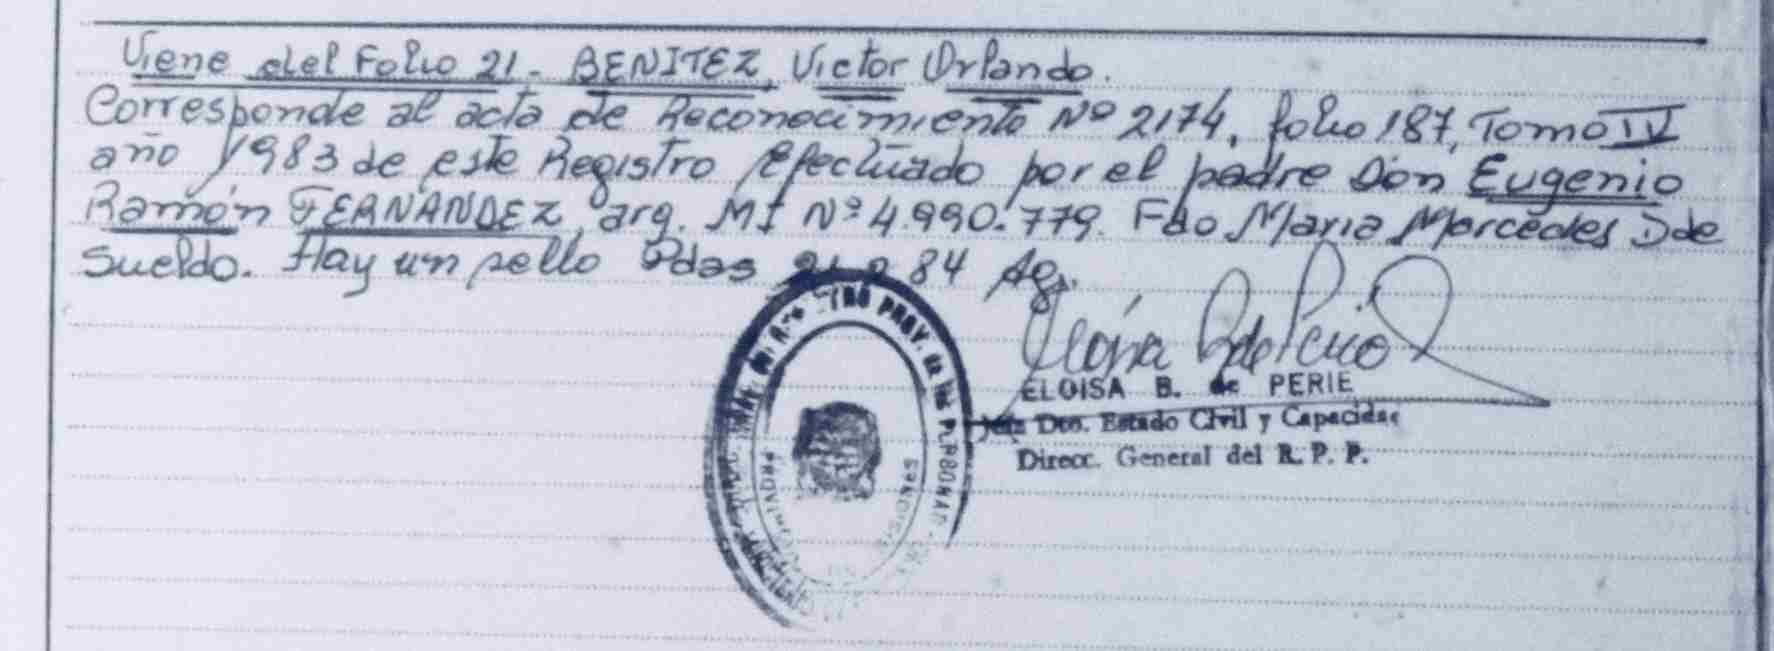 Viene del Folio 21 - BENITEZ, Victor Orlando.
Corresponde al acta de Reconocimiento Nº 2174, folio 187, Tomo IV
año 1983 de este Registro efectuado por el padre Don Eugenio
Ramón FERNANDEZ, arg. MI Nº 4.990.779. Fdo Maria Mercedes D de
Sueldo. Hay un sello Pdas 84
ELOISA B. de PERIE
Jefa Dto. Estado Civil y Capacidad
Direcc. General del R. P. P.
PROV. de las PERSONAS